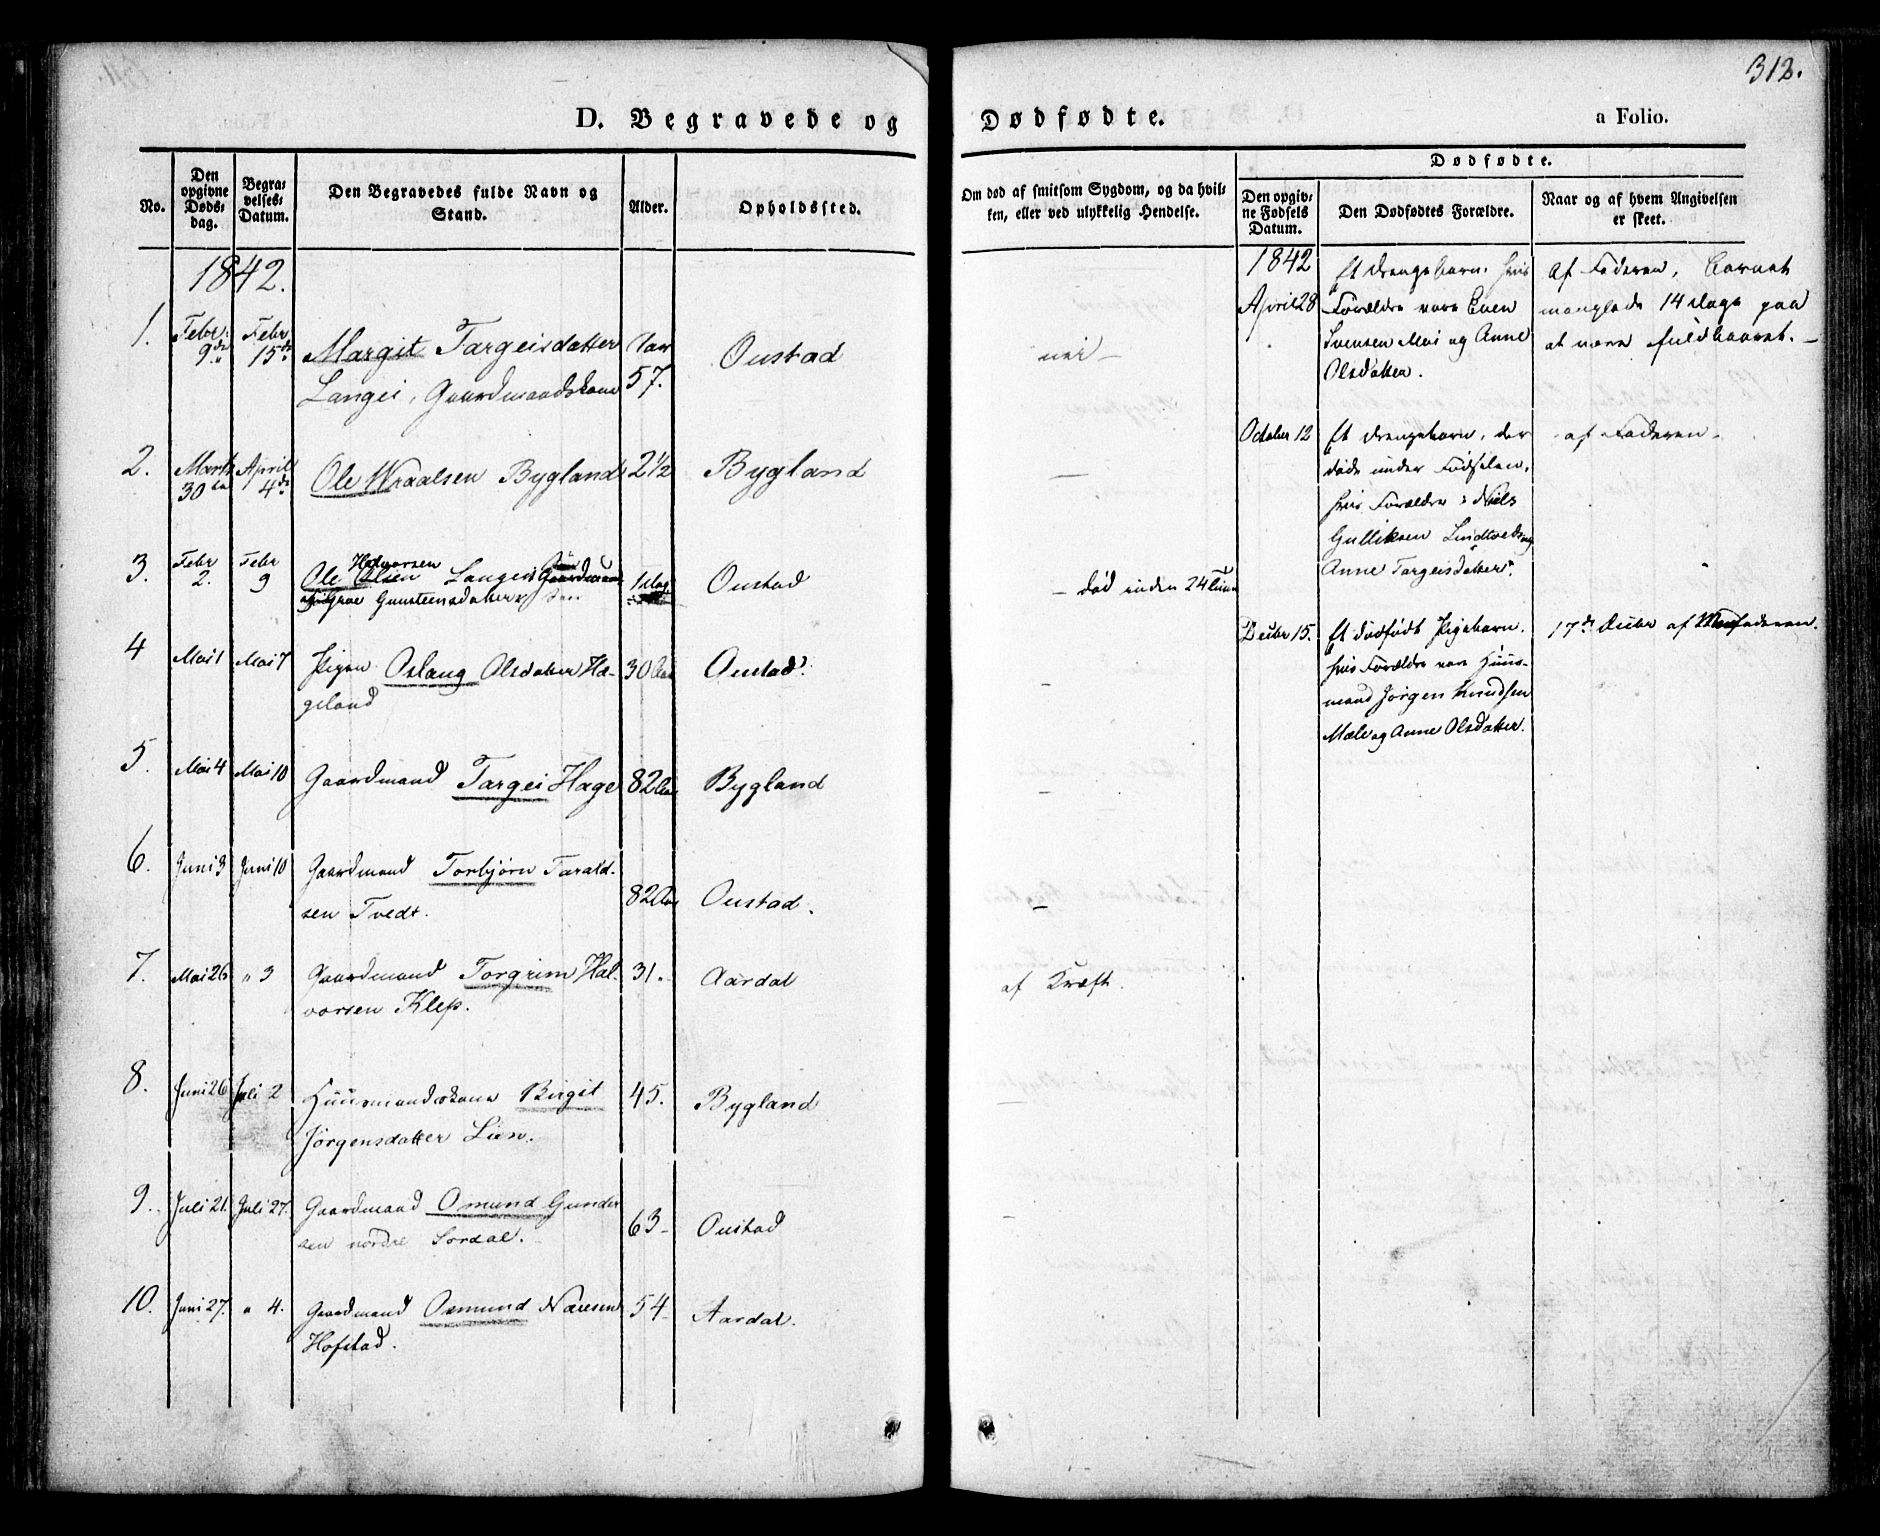 312.
D. Begravede og Dødfødte.
a Folio.
No.
Den opgivne Døds-dag.
Begra-velses-Datum.
Den Begravedes fulde Navn og Stand.
Alder.
Opholdssted.
Om død af smitsom Sygdom, og da hvil-ken, eller ved ulykkelig Hendelse.
Dødfødte.
Den opgiv-ne Fødsels Datum.
Den Dødfødtes Forældre.
Naar og af hvem Angivelsen er skeet.
1842.
1. Febr: 9de Febr 15de Margit Targeisdatter Aar Oustad nei –
Langei, Gaardmandskone 57.
2. Marts 30te April 4de Ole Wraalsen Bygland 2½ Bygland –
3. Febr 2. Febr 9 Halvorsen
Ole Olsen Langei Gaardmand 1 dag Oustad – død inden 24 Timer
Groe Gunsteensdatter
4 Mai 1 Mai 7 Pigen Oslaug Olsdatter Ha- 30 Aar Oustad. –
geland
5. Mai 4 Mai 10 Gaardmand Targei Hage 82 Aar Bygland –
6. Juni 3 Juni 10 Gaardmand Torbjørn Tarald-
sen Tvedt. 82 Aar Oustad. –
7. Mai 26 " 3 Gaardmand Torgrim Hal- 31. Aardal af Kræft.
vorsen Klep.
8. Juni 26 Juli 2 Huusmandskone Birgit 45. Bygland –
Jørgensdatter Lien.
9. Juli 21. Juli 27. Gaardmand Osmund Gunder
sen nordre Sordal. 63 – Oustad –
10. Juni 27. " 4. Gaardmand Osmund Naresen 54 – Aardal.
Hofstad.
1842
April 28 Et Drengebarn. hvis
Forældre vare Even
Svensen Moi og Anne
Olsdatter.
Af Faderen, Barnet
manglede 14 Dage paa
at være fuldbaaret. –
October 12 Et Drengebarn, der
døde under Fødselen,
hvis Forældre: Niels
Gulliksen Lindtveds og
Anne Targeisdatter.
af Faderen –
Decbr 15. Et dødfødt Pigebarn.
hvis Forældre vare Huus-
mand Jørgen Knudsen
Mæle og Anne Olsdatter.
17de Decbr af Morfaderen.